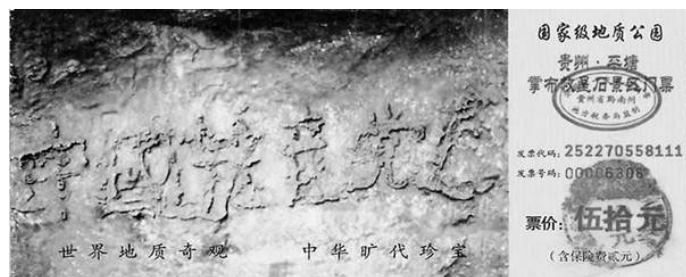 中国共产党
世界地质奇观 中华旷代珍宝
国家级地质公园
贵州·平塘
掌布救星石景区门票
贵州省黔南州
地方税务局监制
发票代码:252270558111
发票号码:
票价:伍拾元
(含保险费贰元)